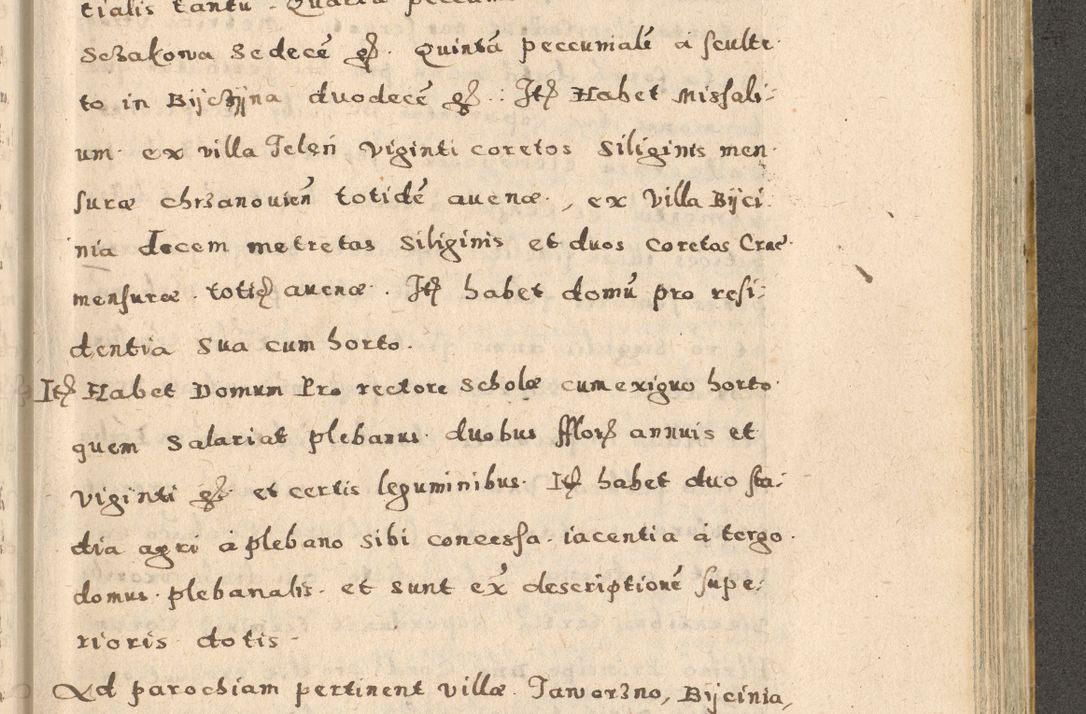 tialis tantu. Quarta
Sczakowa Sedecē gs. Quintā peccunialē a sculte
to in Bijczijna duodecē gs. : Itē Habet Missali:
um. ex villa Jeleń viginti coretos Siliginis men.
suræ chrzanovien̄ totidē auenæ., ex Villa Bijci.
nia decem metretas Siliginis et duos coretos Crac.
mensuræ. totiđ auenæ. Itē habet domū pro resi:
dentia Sua cum horto.
Itē Habet Domum Pro rectore Scholæ cum exiguo horto.
quem Salariat plebanus. duobus fflor̄ annuis et
viginti gs. et certis leguminibus. Itē habet duo sta:
dia agri à plebano Sibi concessa. iacentia à tergo.
domus. plebanalis. et Sunt ex̄ descriptionē supe:
rioris dotis -
Ad parochiam pertinent villæ. Jaworzno, Bijcinia,